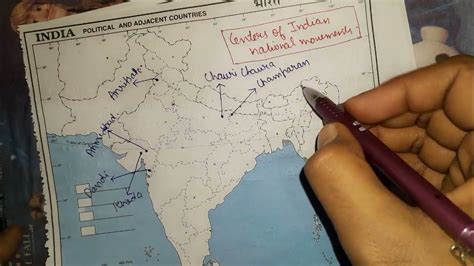 भारत
INDIA POLITICAL AND ADJACENT COUNTRIES
Centers of Indian
national movements
Chauri Chaura
Champaran
Amritsar
Ahmedabad
Dandi
Kheda